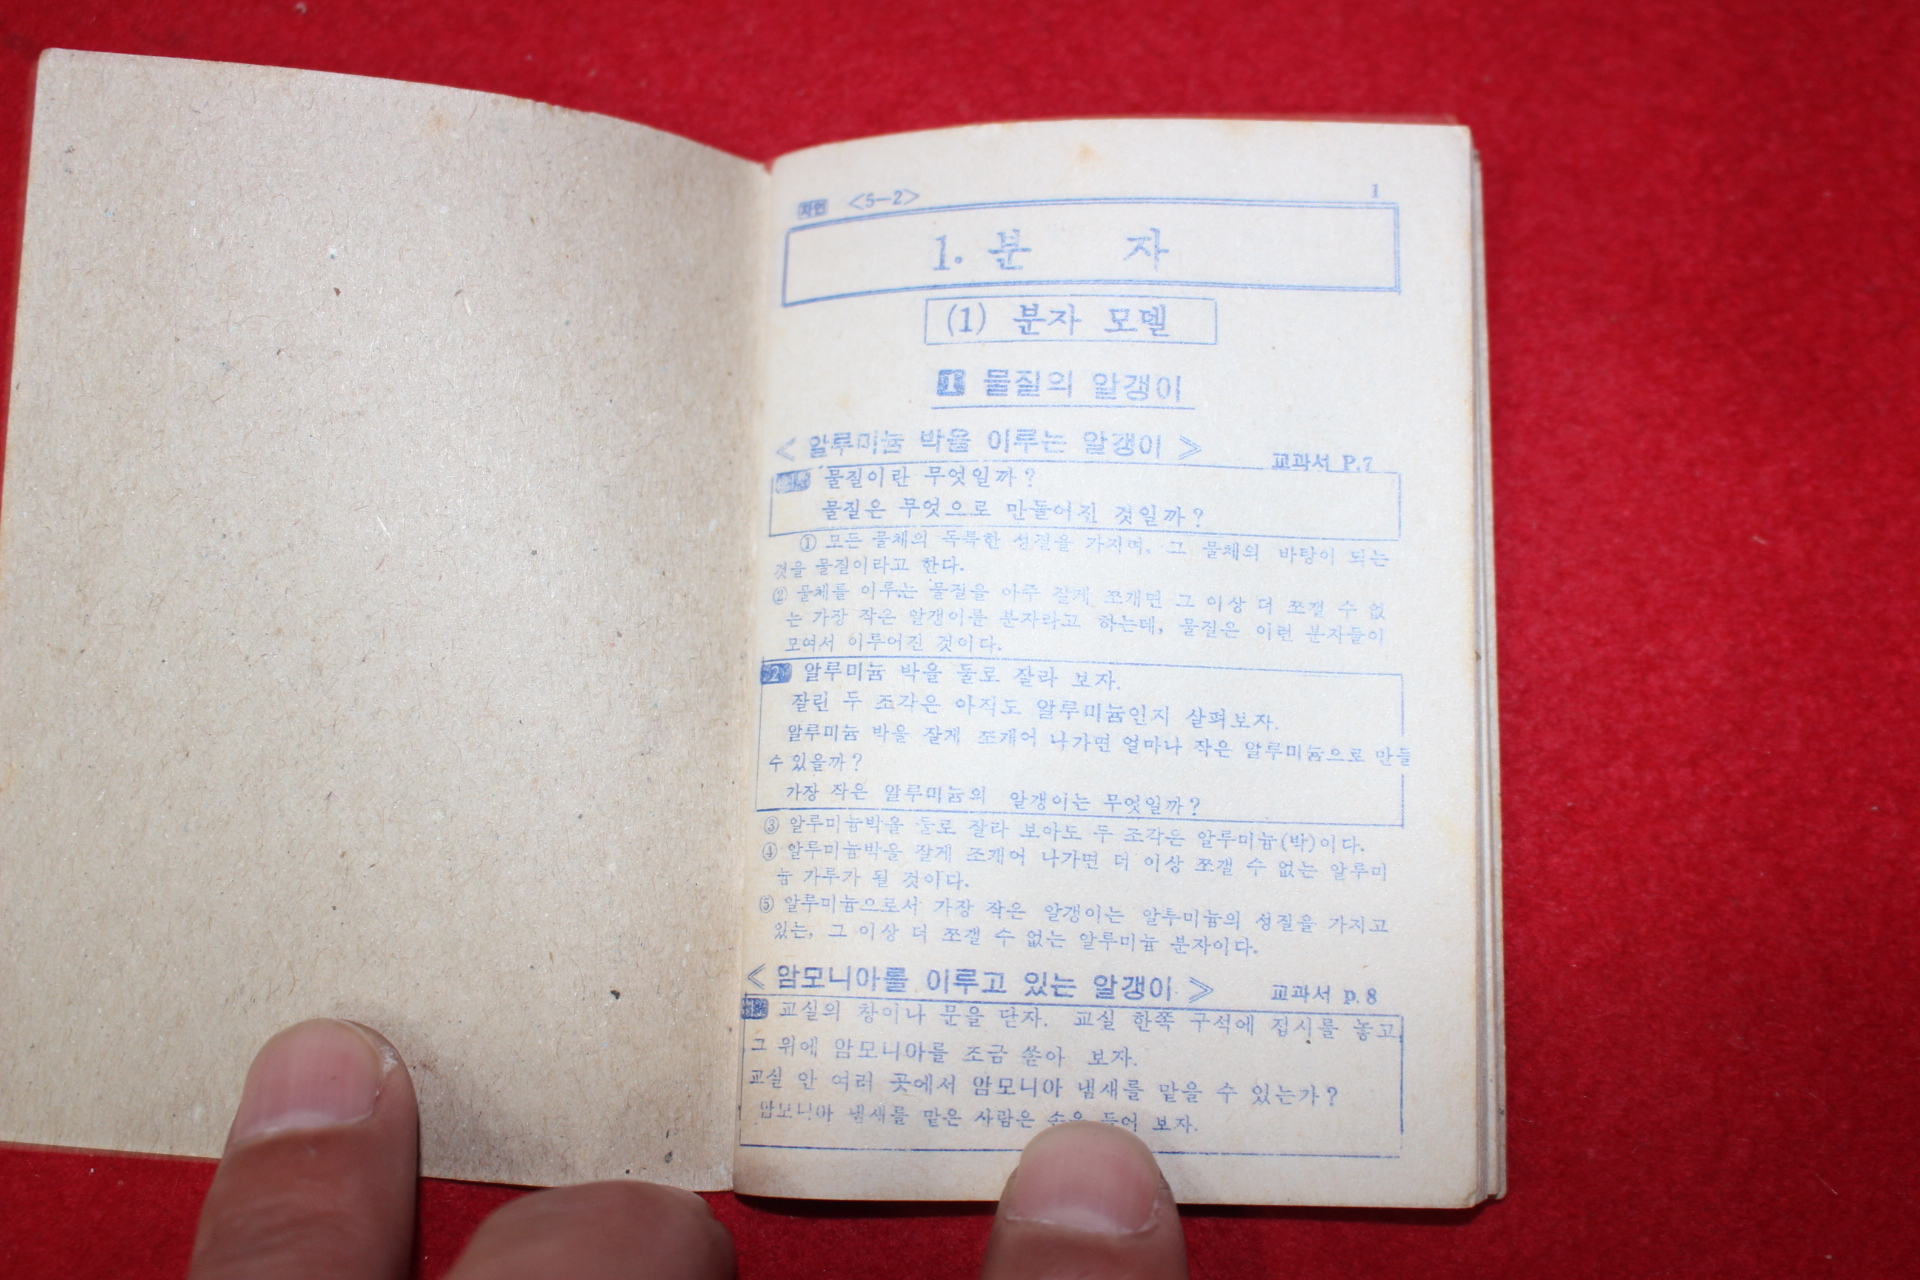 자연 <5-2> 1
1. 분 자
(1) 분자 모델
1 물질의 알갱이
< 알루미늄 박을 이루는 알갱이 > 교과서 P.7
물질이란 무엇일까?
물질은 무엇으로 만들어진 것일까?
① 모든 물체의 독특한 성질을 가지며, 그 물체의 바탕이 되는
것을 물질이라고 한다.
② 물체를 이루는 물질을 아주 잘게 쪼개면 그 이상 더 쪼갤 수 없
는 가장 작은 알갱이를 분자라고 하는데, 물질은 이런 분자들이
모여서 이루어진 것이다.
2 알루미늄 박을 둘로 잘라 보자.
잘린 두 조각은 아직도 알루미늄인지 살펴보자.
알루미늄 박을 잘게 쪼개어 나가면 얼마나 작은 알루미늄으로 만들
수 있을까?
가장 작은 알루미늄의 알갱이는 무엇일까?
③ 알루미늄박을 둘로 잘라 보아도 두 조각은 알루미늄(박)이다.
④ 알루미늄박을 잘게 쪼개어 나가면 더 이상 쪼갤 수 없는 알루미
늄 가루가 될 것이다.
⑤ 알루미늄으로서 가장 작은 알갱이는 알루미늄의 성질을 가지고
있는, 그 이상 더 쪼갤 수 없는 알루미늄 분자이다.
< 암모니아를 이루고 있는 알갱이 > 교과서 p.8
교실의 창이나 문을 닫자. 교실 한쪽 구석에 접시를 놓고
그 위에 암모니아를 조금 쏟아 보자.
교실 안 여러 곳에서 암모니아 냄새를 맡을 수 있는가?
암모니아 냄새를 맡은 사람은 손을 들어 보자.